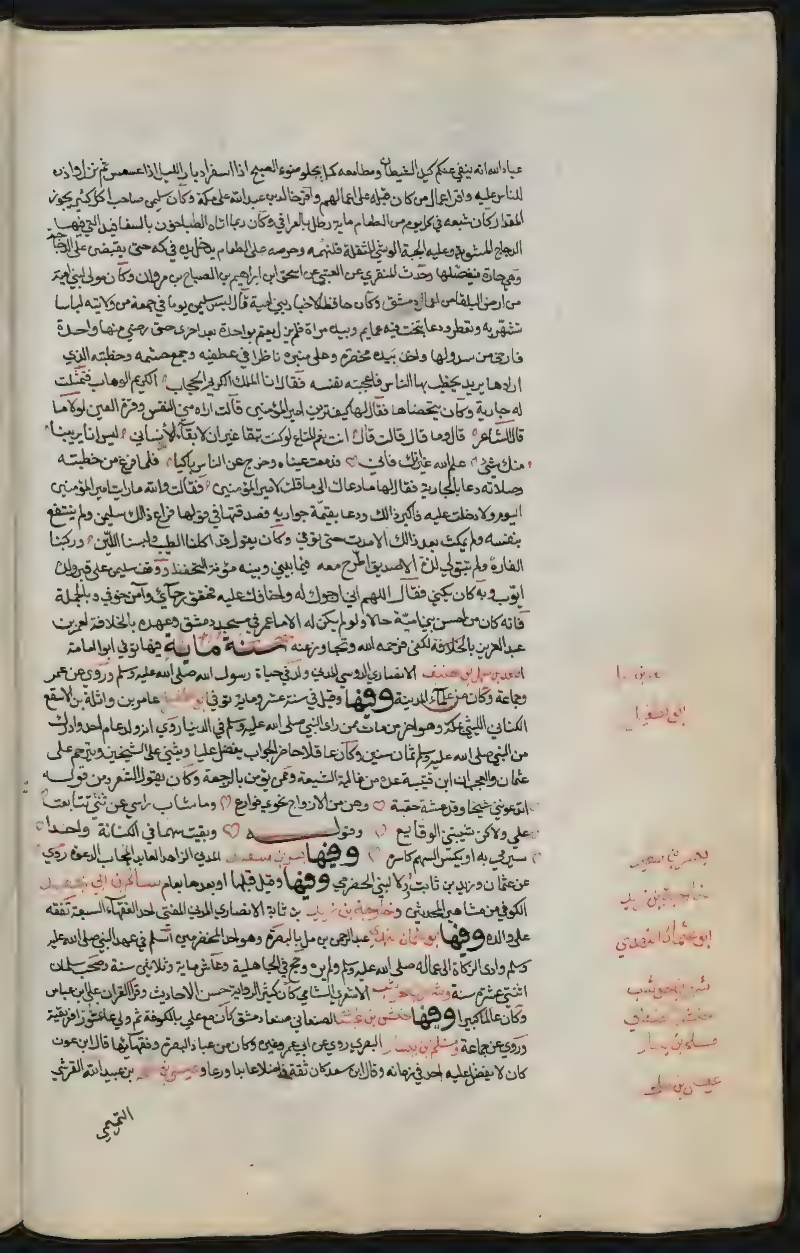 عباد الله انه ينفي عنكم كيد الشيطان ومطامعه كما يجلو ضوء الصبح اذا اسفر ادبار الليل اذا عسعس ثم نزل واذن
للناس عليه واقر اعمال من كان قبله على اعمالهم واقر خالد بن عبد الله على مكة وكان سليمن صاحب اكل كثير يجوز
المقدار كان شبعه في كل يوم من الطعام ماية رطل بالعراقي وكان ربما اتاه الطباخون بالسفافيد التي فيها
الدجاج المشوية وعليه الجبة الوشي المثقلة فلنهمه وحرصه على الطعام يدخل يده في كمه حتى يقبض على الدجاجة
وهي حارة فيفصلها وحدث المنقري عن العتبي عن اسحق ابن ابراهيم بن الصباح بن مروان وكان مولى لبني امية
من ارض البلقا من اعمال دمشق وكان حافظا لاخبار بني امية قال لبس سليمن يوما في جمعة من ولايته لباسا
تشهر به وتعطر ودعا بتخت فيه عمايم وبيده مراة فلم يزل يعتم بواحدة بعد اخرى حتى رضي منها واحدة
فارخى من سدولها واخذ بيده مخصرة وعلى منبره ناظرا في عطفيه وجمع حشمه وخطبته الذي
ارادها يريد يخطب بها الناس فاعجبته نفسه فقال انا الملك الكريم الحجاب الكريم الوهاب فتمثلت
له جارية وكان يتحضاها فقال لها كيف ترين امير المؤمنين قالت اراه منى النفس وقرة العين لولا ما
قال الشاعر قال وما قال قالت قال انت نعم المتاع لو كنت تبقا غير ان لا بقاء للانساني ليس انا يريبنا
منك شيئ علم الله غير انك فاني فدمعت عيناه وخرج عن الناس باكيا فلما فرغ من خطبته
وصلاته دعا بالجارية فقال لها ما دعاك الى ما قلت لامير المؤمنين فقالت والله ما رايت امير المؤمنين
اليوم ولا دخلت عليه فاكبر ذالك ودعا بقيمة جواريه فصدقتها في قولها فراع ذالك سليمن ولم ينتفع
بنفسه ولم يمكث بعد ذالك الا مديت حتى توفي وكان يقول قد اكلنا الطيب ولبسنا اللين وركبنا
الفارة ولم تبق لي لذة الا صديق اطرح معه فيما بيني وبينه مؤنة التحفظ ووقف سليمن على قبر ولده
ايوب وبه كان يكنى فقال اللهم اني ارجوك له واخافك عليه فحقق رجائي وآمن خوفي وبالجملة
فانه كان من احسن بني امية حالا ولو لم يكن له الا ما عمر في مسجد دمشق وعهده بالخلافة لعمر بن
عبد العزيز بالخلافة لكفى فرحمه الله وتجاوز عنه سنة ماية فيها توفي ابو امامة
اسعد بن سهل بن حنيف الانصاري الاوسي المدني ولد في حياة رسول الله صلى الله عليه وسلم وروي عن عمر
وجماعة وكان من علماء المدينة وفيها وقيل في سنة عشر وماية توفي ابو طفيل عامر بن واثلة بن الاسقع
الكناني الليثي بمكة وهو اخر من مات ممن راى النبي صلى الله عليه وسلم في الدنيا روي انه ولد عام احد وادرك
من النبي صلى الله عليه وسلم ثمان سنين وكان عاقلا حاضر الجواب يفضل عليا ويثني على الشيخين ويترحم على
عثمان والعجب ان ابن قتيبة عده من غالية الشيعة وممن يؤمن بالرجعة وكان يقول الشعر ومن قوله
اتدعونني شيخا وقد عشت حقبة وهن من الازواج نحوي فوازع وما شاب راسي عن تتابعت
علي ولاكن شيبتني الوقايع وقوله وبقيت سهما في الكنانة واحدا
سيرمي به او يكسر السهم كاسره وفيها بسر بن سعيد المدني الزاهد العابد المجاب الدعوة روي
عن عثمان وزيد بن ثابت ولا لبني الحضرمي وفيها وقيل قبلها او بعدها بعام سالم بن ابي الجعد
الكوفي من مشاهير المحدثين وخارجة بن زيد بن ثابة الانصاري المدني المفتي احد الفقهاء السبعة تفقه
على والده وفيها ابو عثمان النهدي عبد الرحمن بن مل بالبصرة وهو احد المخضرمين اسلم في عهد النبي صلى الله عليه
وسلم وادى الزكاة الى عماله صلى الله عليه وسلم ولم يره وحج في الجاهلية وعاش ماية وثلاثي سنة وصحب سلمان
اثنتي عشرة سنة وشهر بن حوشب الاشعري الشامي كان كثير الرواية حسن الاحاديث وقرأ القران على ابن عباس
وكان عالما كبيرا وفيها حنش بن عبد الله الصنعاني صنعا دمشق كان مع علي بالكوفة ثم ولي عاشور افريقية
وروي عن جماعة ومسلم بن يسار البصري روي عن ابي عمر وغيره وكان من عباد البصرة وفقهائها قال ابن عون
كان لا يفضل عليه احد في زمانه وقال ابن سعد كان ثقة فاضلا عابدا ورعا وعيسى بن طلحة بن عبيد الله القرشي
التميمي
بسر بن سعيد
خارجة بن زيد
ابو عثمان النهدي
شهر بن حوشب
حنش الصنعاني
مسلم بن يسار
عيسى بن طلحة